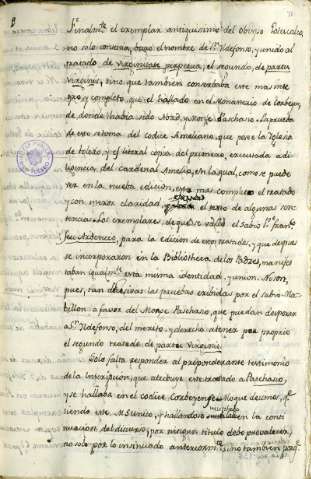 Finalmte. el exemplar antiquissimo del obispo Pascales,
no solo conserva, bajo el nombre de Sn. Ildefonso, y unido al
tratado de virginitate perpetua, el segundo, de partu
virginis; sino que tambien considerado este mas inte
gro, y completo, que el hallado en el Monasterio de Corbeya,
de donde havia sido Abad, y Monje Paschasio. La prueba
de esto se toma del codice Ameliano, que posee la Iglesia
de Toledo, y es literal copia del primero, executada a di-
ligencia del cardenal Amelio, en la qual, como se puede
ver en la nueva edicion, esta mas completo el tratado
y con mayor claridad, el texto de algunas sen
tencias. Los exemplares, de que se valió el sabio Pe. Fran.
Feu-Ardencio, para la edicion de este tratado, y que despues
se incorporaron en la Bibliotheca de los Padres, manifes
taban igualmte. esta misma identidad, y union. No son,
pues, tan decisivas las pruebas exibidas por el sabio Ma-
billon a favor del Monje Paschasio, que puedan despojar
a Sn. Ildefonso, del merito, y derecho a tener por proprio
el segundo tratado de partu Virginis.
Solo falta responder al preponderante testimonio
de la Inscripcion, que atribuye este tratado a Paschasio,
y se hallaba en el codice Corbeyense. Mas que decimos,
tiendo este M.S. unico, y hallandose mutilado en la conti
nuacion del discurso, por ningun titulo debe prevalecer,
no solo por lo insinuado anteriormte., sino tambien porq.